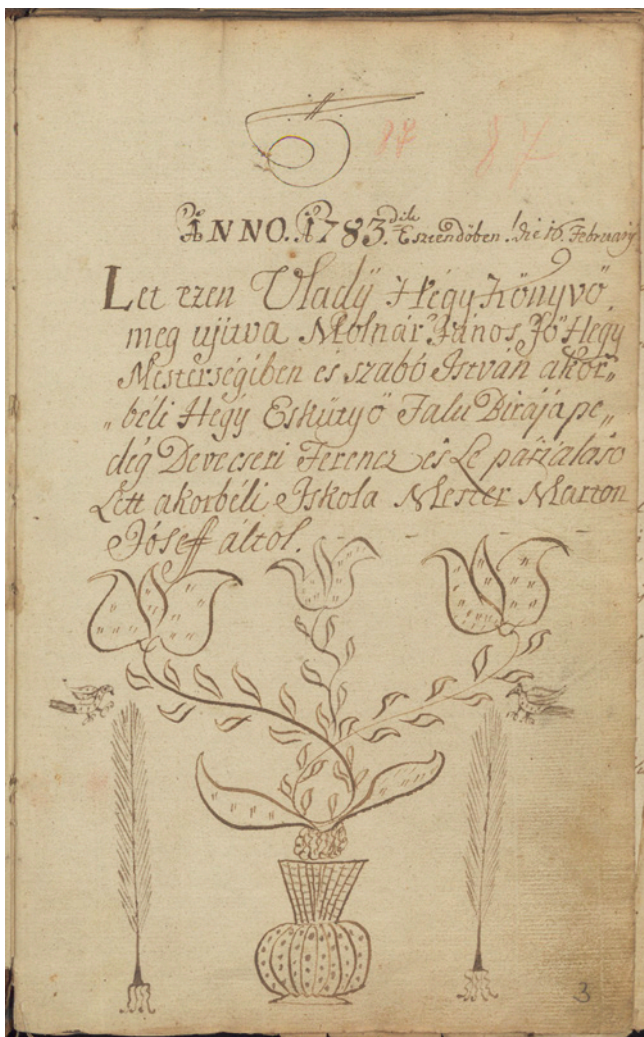 87 87
ANNO. 1783.dik Esztendőben. die 16. February
Let ezen Vladÿ Hegÿ Könyvő
meg ujitva Molnár János Jó Hegy
Mesterségiben és szabó István akor„
„béli Hegÿ Esküttÿő Falu Birája pe„
dég Devecseri Ferencz és Le párialáso
Lett akorbéli Iskola Mester Marton
Jóseff áltol.
3